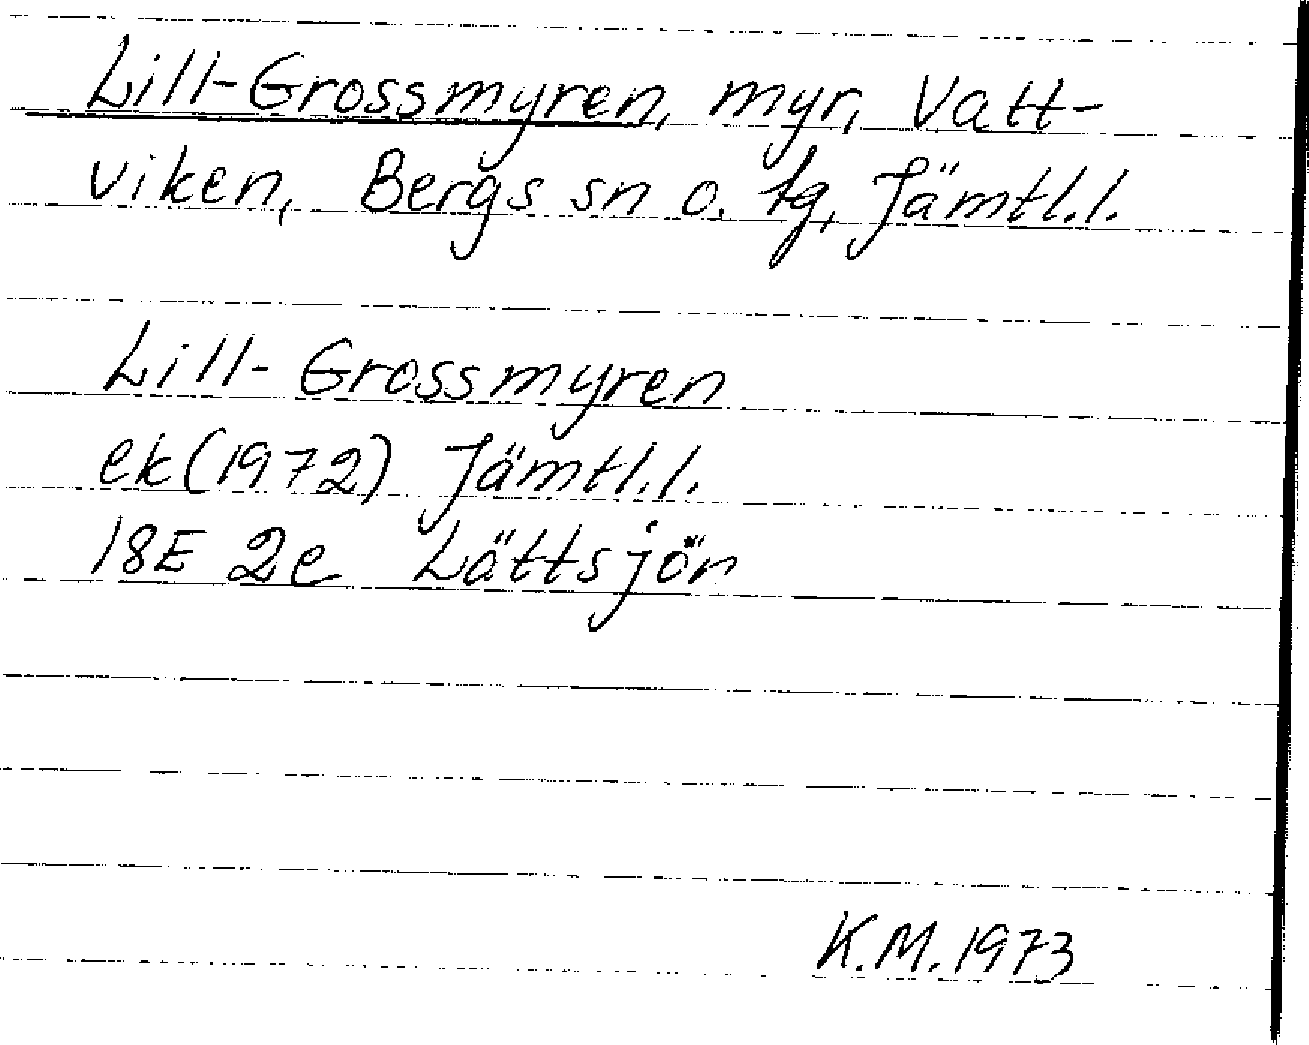 Lill-Grossmyren, myr, Vatt-
viken, Bergs sn o. tg, Jämtl.l.
Lill-Grossmyren
ek (1972) Jämtl.l.
18E 2e Lättsjön
K.M. 1973